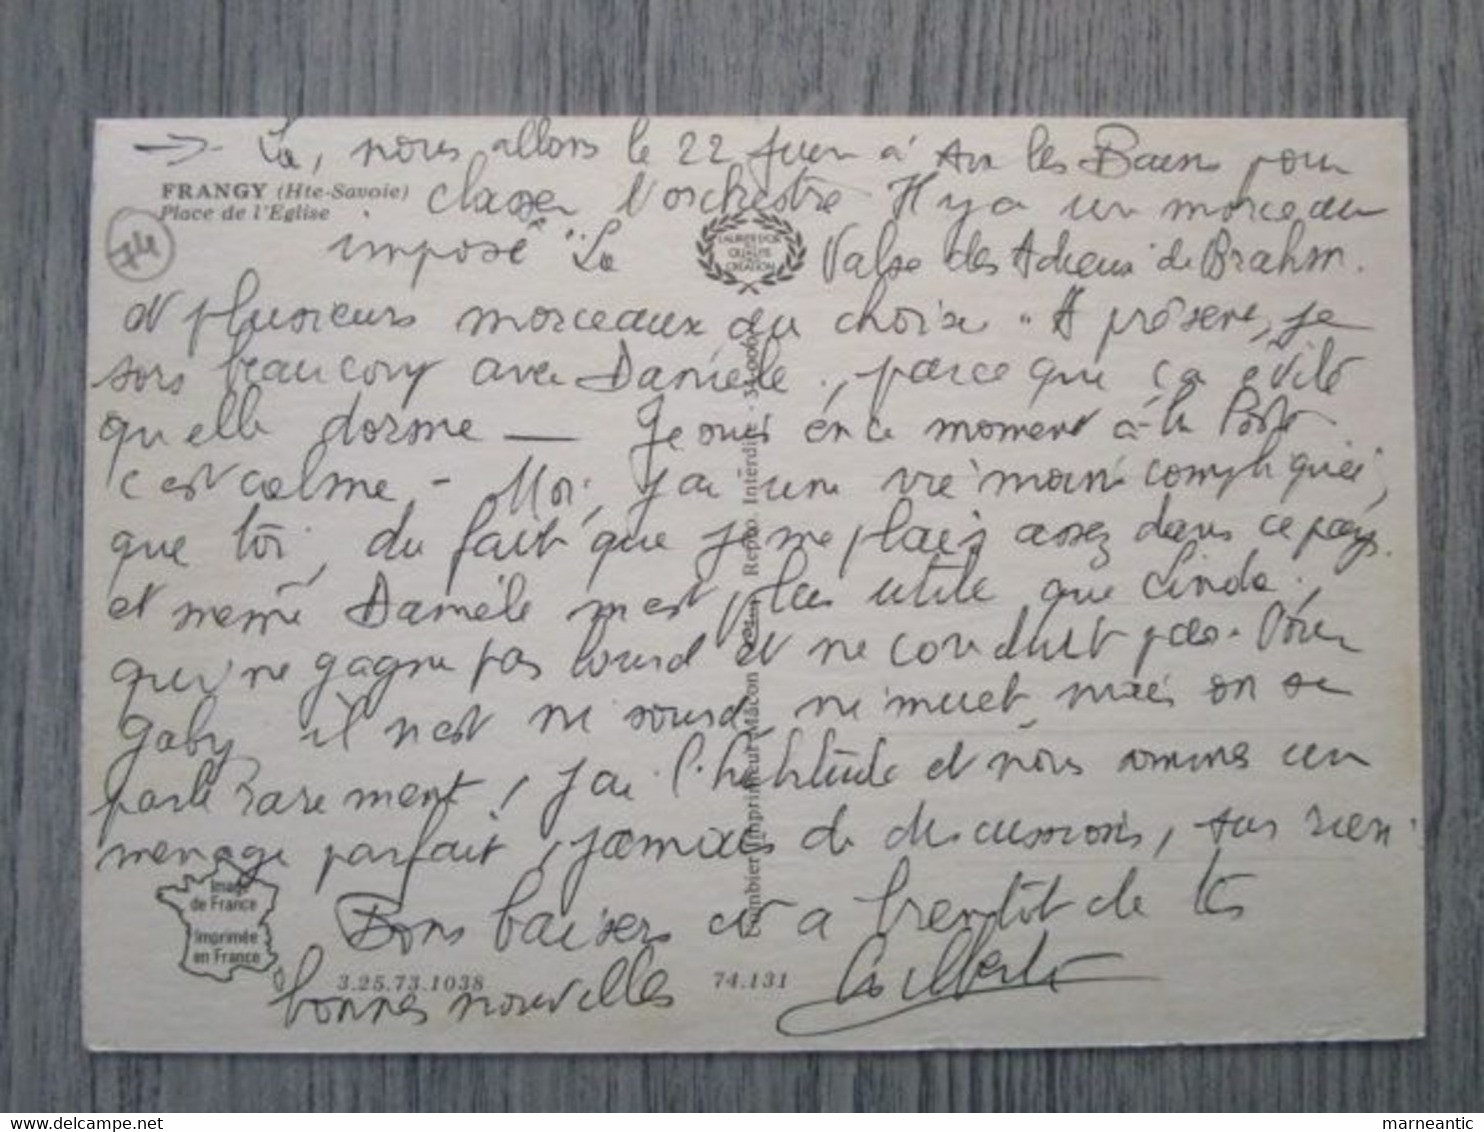 → Là, nous allons le 22 Juin à Aix les Bains pour
FRANGY (Hte-Savoie)
Place de l'Eglise
classer l'orchestre Il y a un morceau
74
imposé "La Valse des Adieux" de Brahm.
LAURIER D'OR
QUALITÉ
CRÉATION
et plusieurs morceaux au choix. A présent, je
sors beaucoup avec Danièle, parce que ça évite
qu'elle dorme — Je suis en ce moment à la Poste
c'est calme, - Moi, j'ai une vie moins compliquée,
que toi, du fait que je me plais assez dans ce pays.
et même Danièle m'est plus utile que Linda,
qui ne gagne pas lourd et ne conduit pas. Pour
Gaby, il n'est ni sourd, ni muet, mais on se
parle rarement, j'ai l'habitude et nous sommes un
menage parfait, jamais de discussions, sur rien.
Image
de France
Imprimée
en France
Bons baisers et a bientôt de tes
bonnes nouvelles
Gilberte
3.25.73.1038
74.131
Combier Imprimeur Mâcon
Repro. Interdite -
marneantic